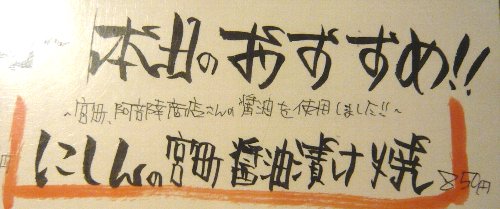 本日のおすすめ!!
~宮町、阿部陣商店さんの醤油を使用しました!!~
にしんの宮町醤油漬け焼 850円
円